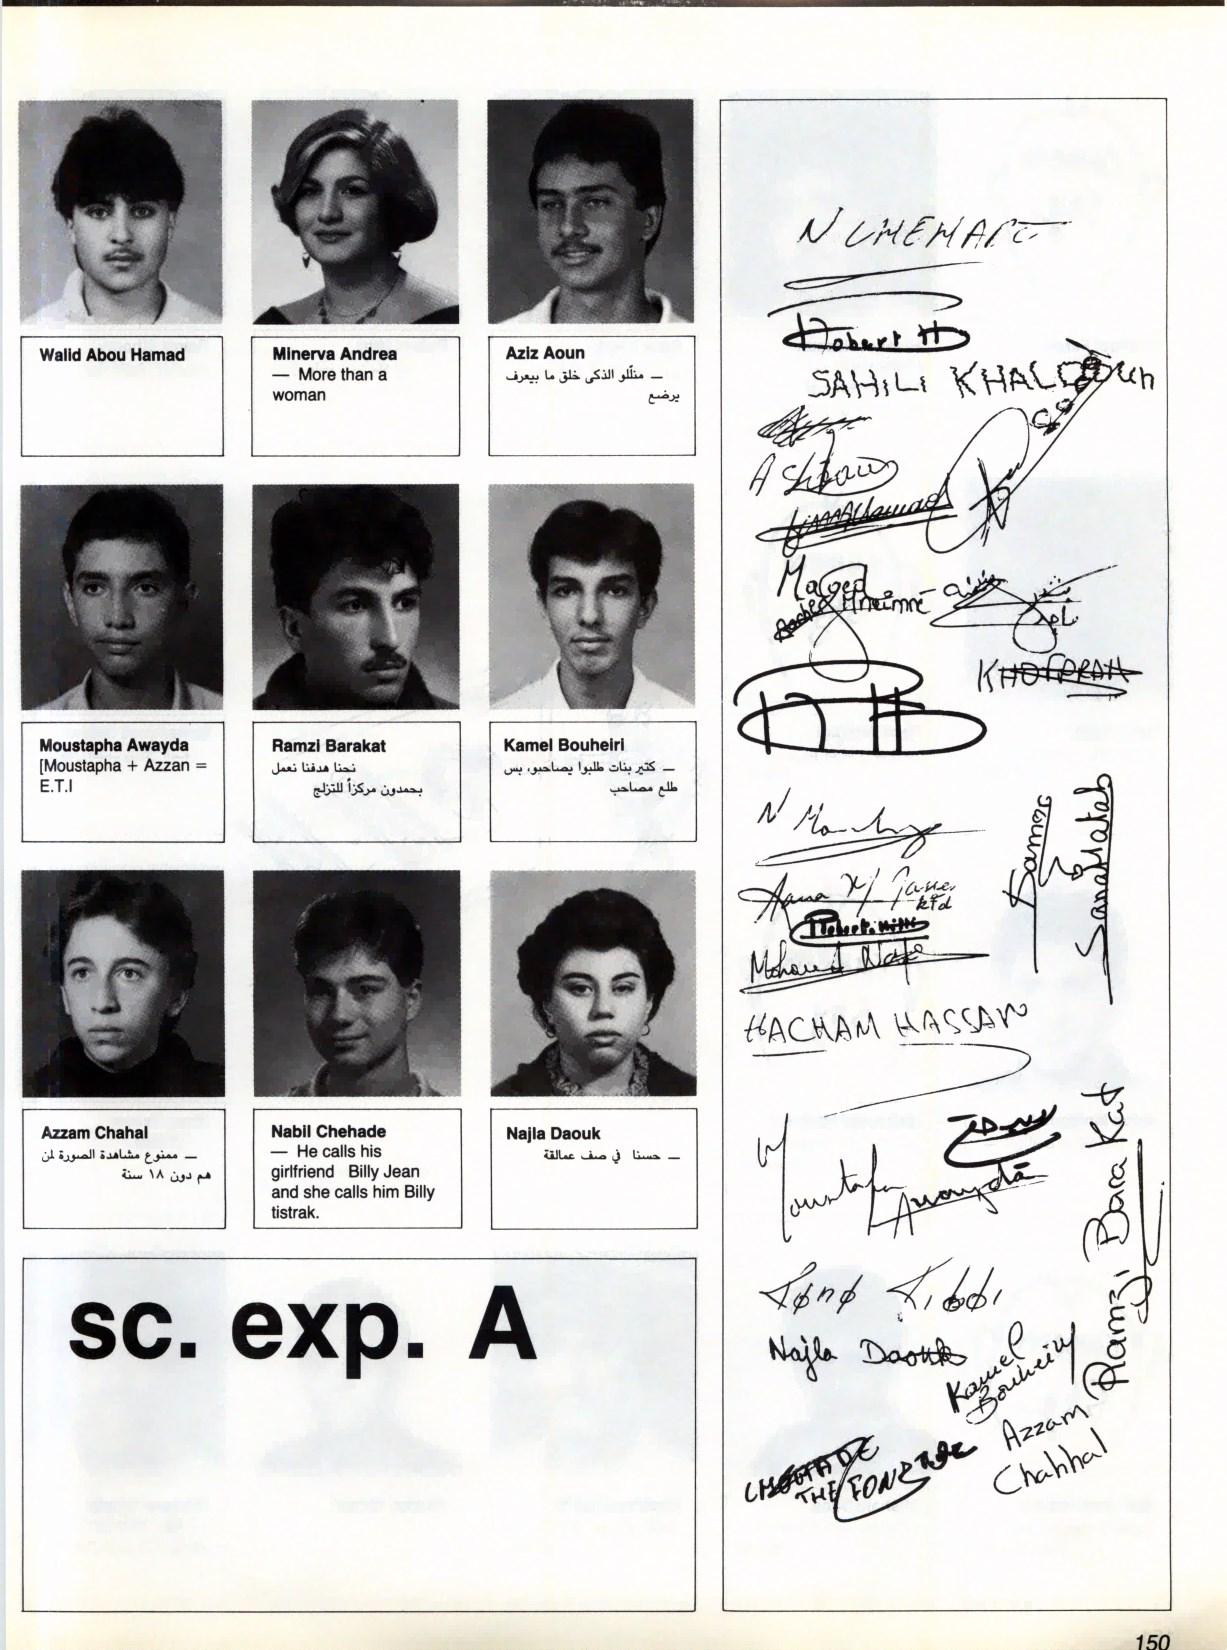 Walid Abou Hamad
Minerva Andrea
— More than a
woman
Aziz Aoun
— منللو الذكى خلق ما بيعرف
يرضع
Moustapha Awayda
[Moustapha + Azzan =
E.T.I
Ramzi Barakat
نحنا هدفنا نعمل
بحمدون مركزاً للتزلج
Kamel Bouheiri
— كتير بنات طلبوا يصاحبو، بس
طلع مصاحب
Azzam Chahal
— ممنوع مشاهدة الصورة لمن
هم دون ١٨ سنة
Nabil Chehade
— He calls his
girlfriend Billy Jean
and she calls him Billy
tistrak.
Najla Daouk
— حسنا في صف عمالقة
sc. exp. A
Robert H
SAHiLi KHALDOUN
Maged
Hneimné
N
Samer
Sana Hatab
Mohamed
HACHAM HASSAN
Moustafa
Awayda
Ramzi Barakat
Najla Daouk
Kamel
Bouheiry
Azzam
Chahhal
CHEHADE
THE
150